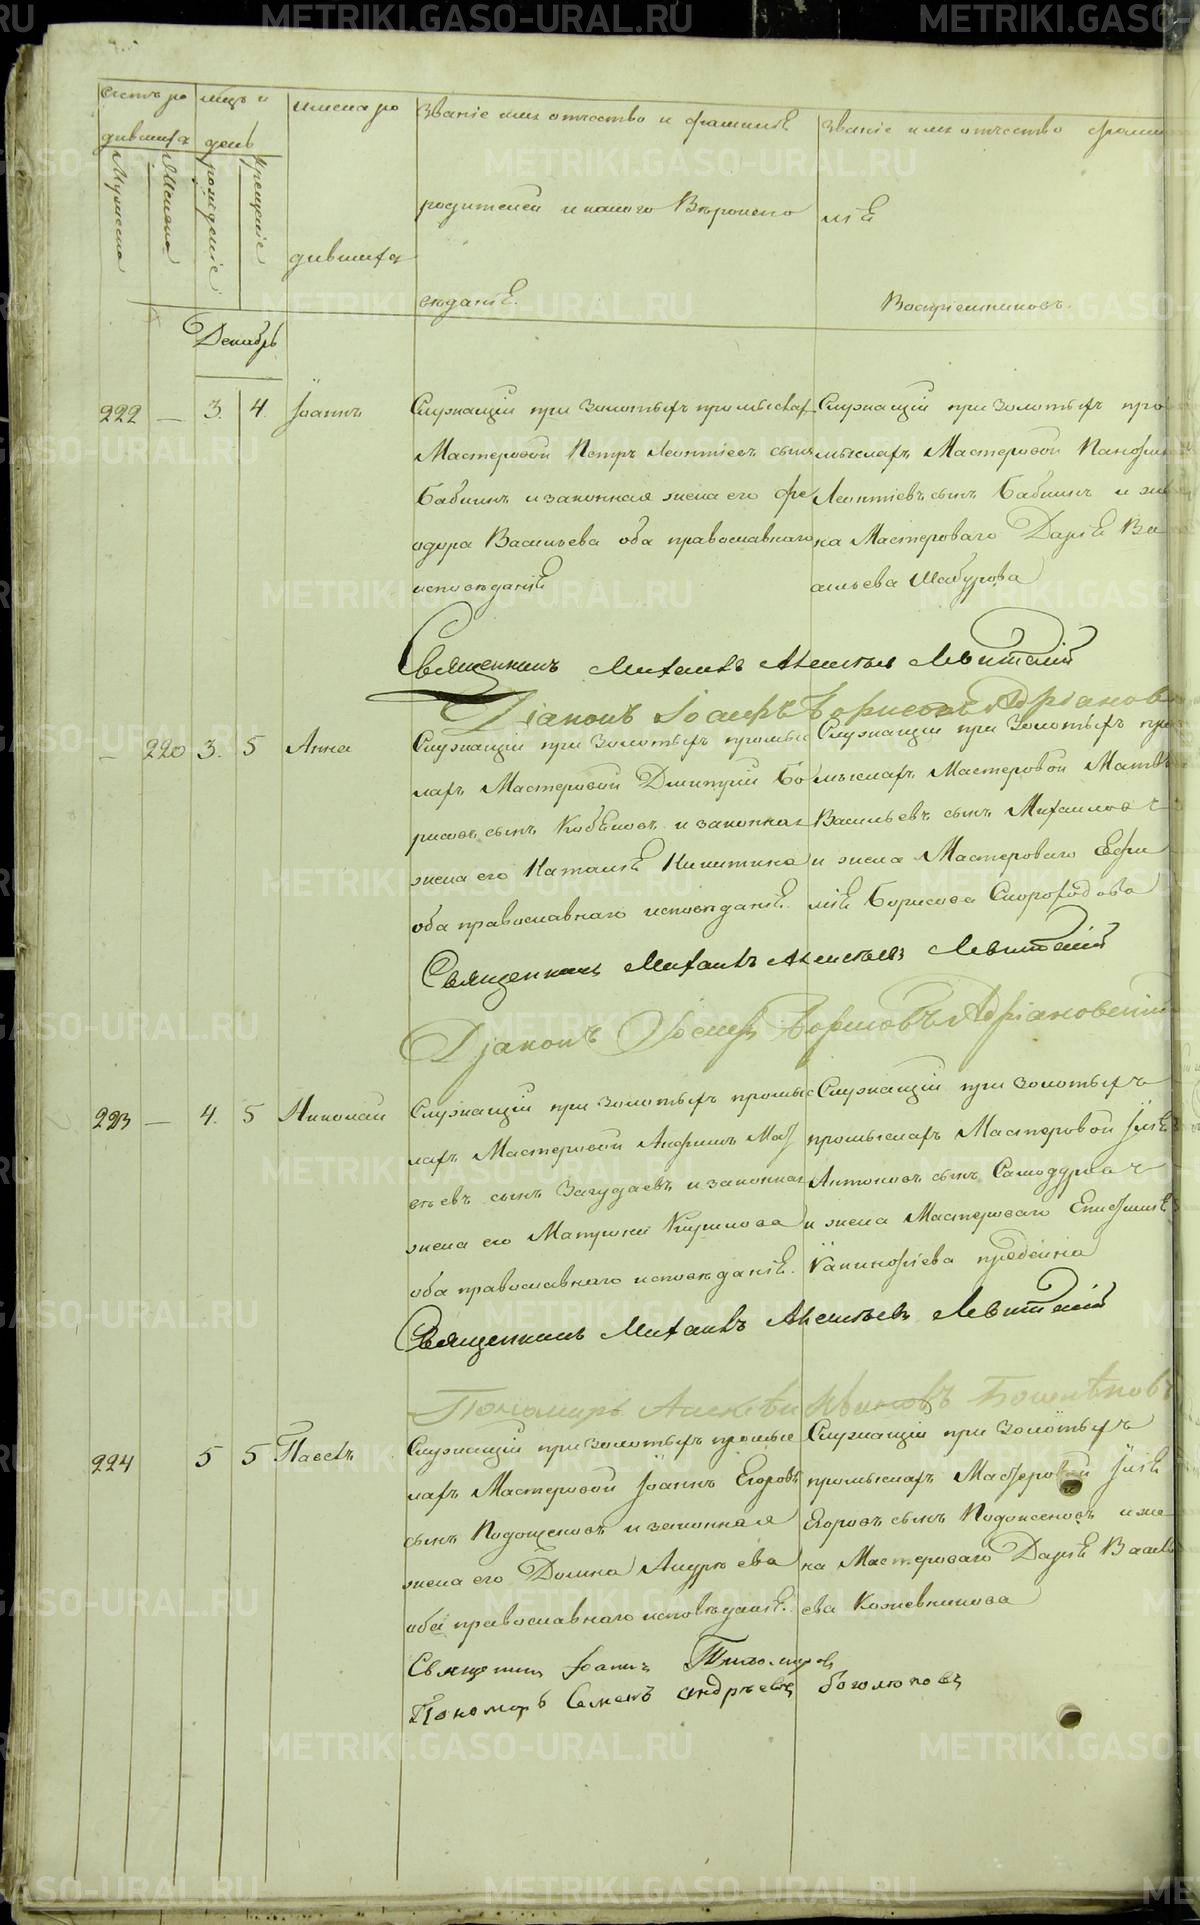 Счетъ ро
дившихся
Мужеска
Женска
мцъ и
день
рожденіе
крещеніе
имена ро
дившихся
Званіе имя отчество и фамилія
родителей и какого Вѣроиспо
вѣданія.
Званіе имя отчество фами
лія
Воспріемниковъ.
Декабрь
222 — 3. 4. Іоаннъ
Служащій при Золотыхъ промыслах
Мастеровой Петръ Леонтіевъ сынъ
Бабкинъ и законная жена его Фе
одора Васильева оба православнаго
исповѣданія
Служащій при Золотыхъ про
мыслахъ Мастеровой
Леонтіевъ сынъ Бабкинъ и же
на Мастероваго Дарія Ва
сильева Шабурова
Священникъ Михаилъ Алексѣевъ Левитскій
Діаконъ Іосифъ Борисовъ Адріановс
— 220 3. 5 Анна
Служащій при Золотыхъ промыс
лахъ Мастеровой Дмитрій Бо
рисовъ сынъ Кобѣловъ и законная
жена его Наталія Никитина
оба православнаго исповѣданія.
Служащій при Золотыхъ про
мыслахъ Мастеровой Матвѣ
Васильевъ сынъ Михаиловъ
и жена Мастероваго Евфи
мія Борисова Скороходова
Священникъ Михаилъ Алексѣевъ Левитскій
Діаконъ Іосифъ Борисовъ Адріановскій
223 — 4. 5 Николай
Служащій при Золотыхъ промыс
лахъ Мастеровой
сынъ и законная
жена его Матрона Кирилова
оба православнаго исповѣданія.
Служащій при Золотыхъ
промыслахъ Мастеровой Илія
Антоновъ сынъ Самодуровъ
и жена Мастероваго
Священникъ Михаилъ Алексѣевъ Левитскій
Пономарь Алексѣй Ивановъ
224 5 5 Павелъ
Служащій при Золотыхъ промыс
лахъ Мастеровой Іоаннъ Егоровъ
сынъ и законная
жена его Домна Андреева
оба православнаго исповѣданія.
Служащій при Золотыхъ
промыслахъ Мастеровой Илія
Егоровъ сынъ и же
на Мастероваго Дарія Василь
ева Кожевникова
Священникъ Іоаннъ Тихомировъ
Пономарь Семенъ Андреевъ Боголюповъ
METRIKI.GASO-URAL.RU